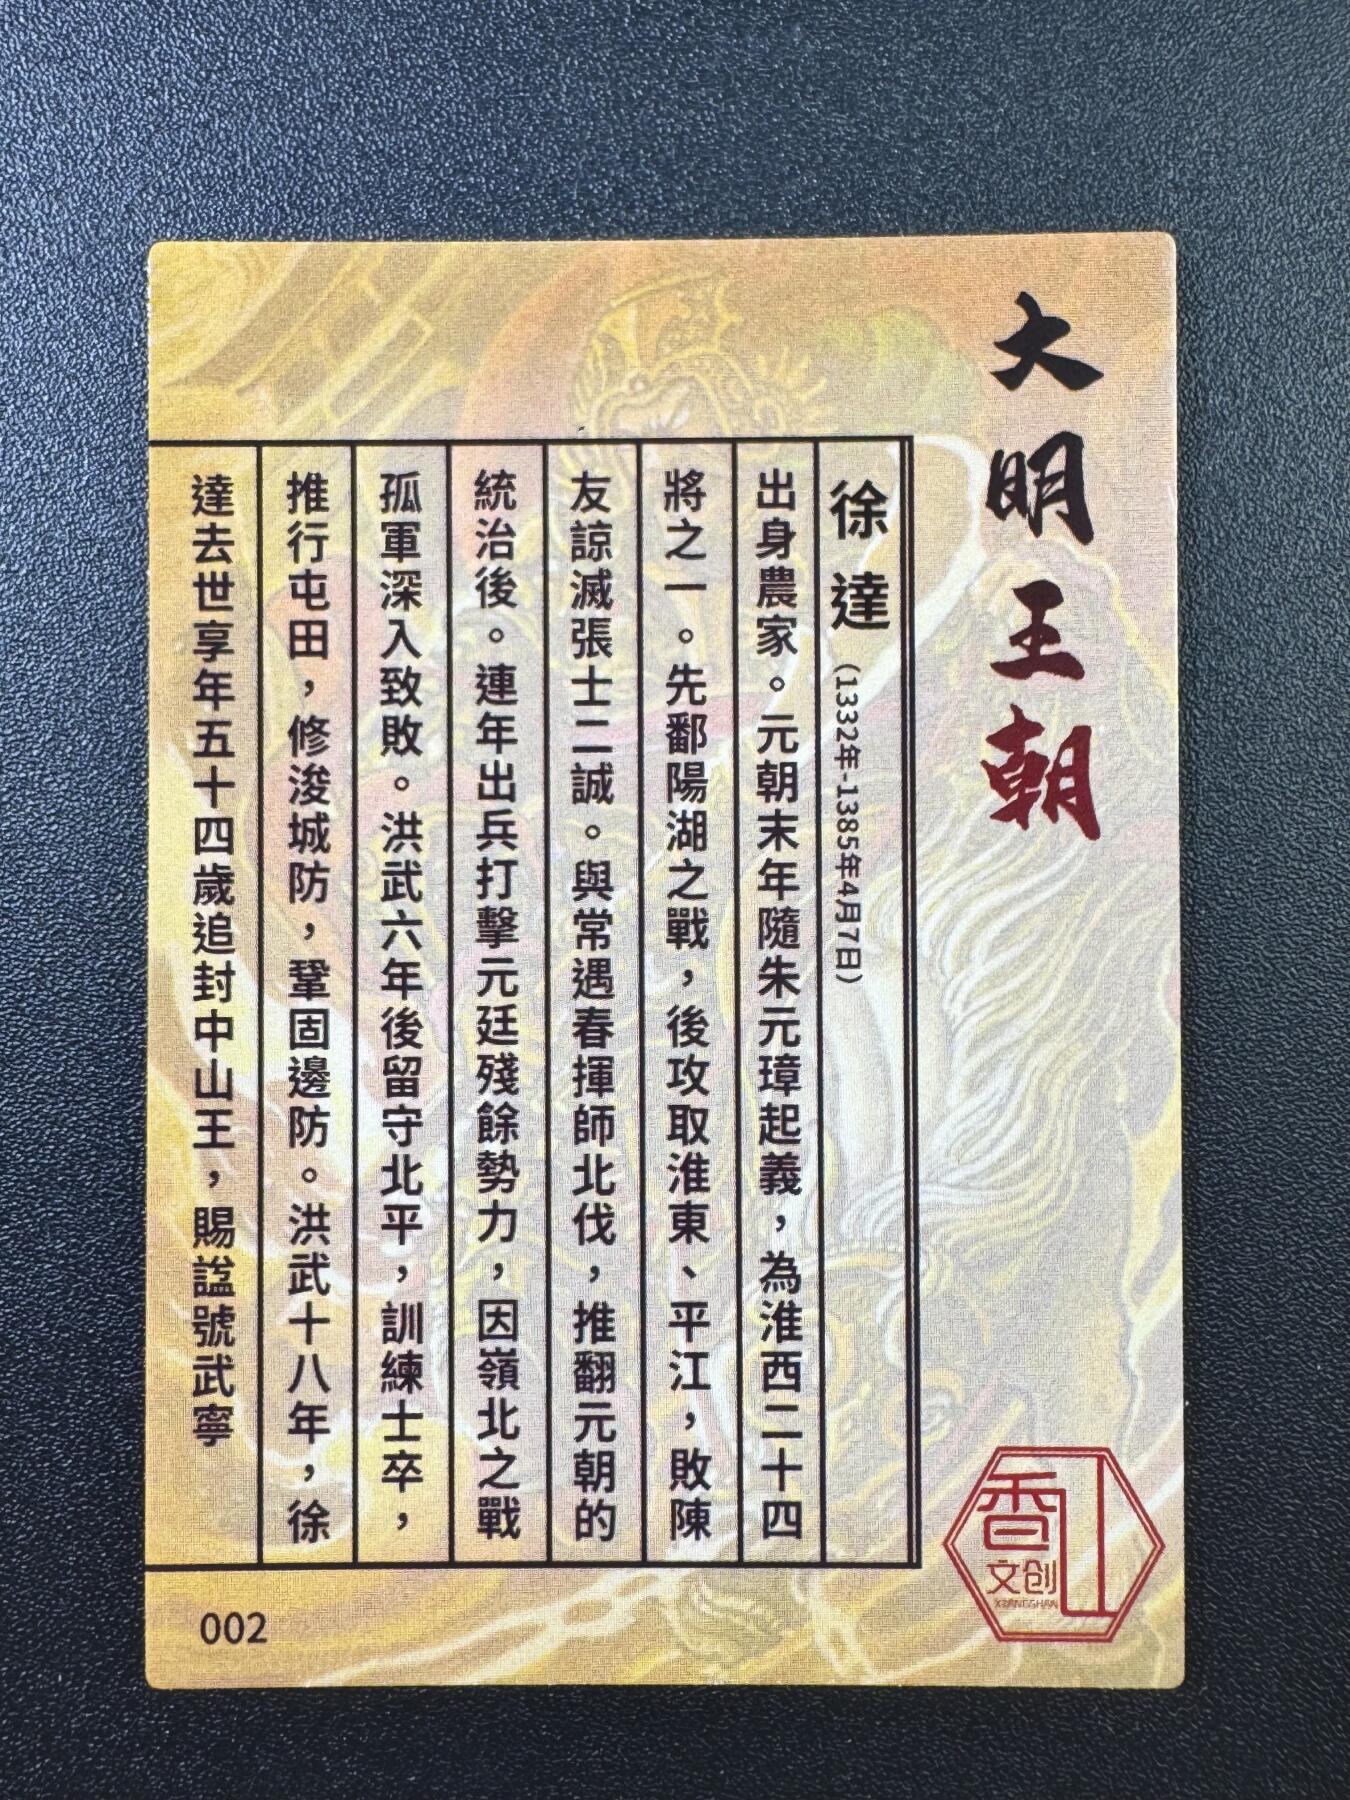 大明王朝
徐達 (1332年-1385年4月7日)
出身農家。元朝末年隨朱元璋起義，為淮西二十四
將之一。先鄱陽湖之戰，後攻取淮東、平江，敗陳
友諒滅張士二誠。與常遇春揮師北伐，推翻元朝的
統治後。連年出兵打擊元廷殘餘勢力，因嶺北之戰
孤軍深入致敗。洪武六年後留守北平，訓練士卒，
推行屯田，修浚城防，鞏固邊防。洪武十八年，徐
達去世享年五十四歲追封中山王，賜諡號武寧
香山
文创
XIANGSHAN
002